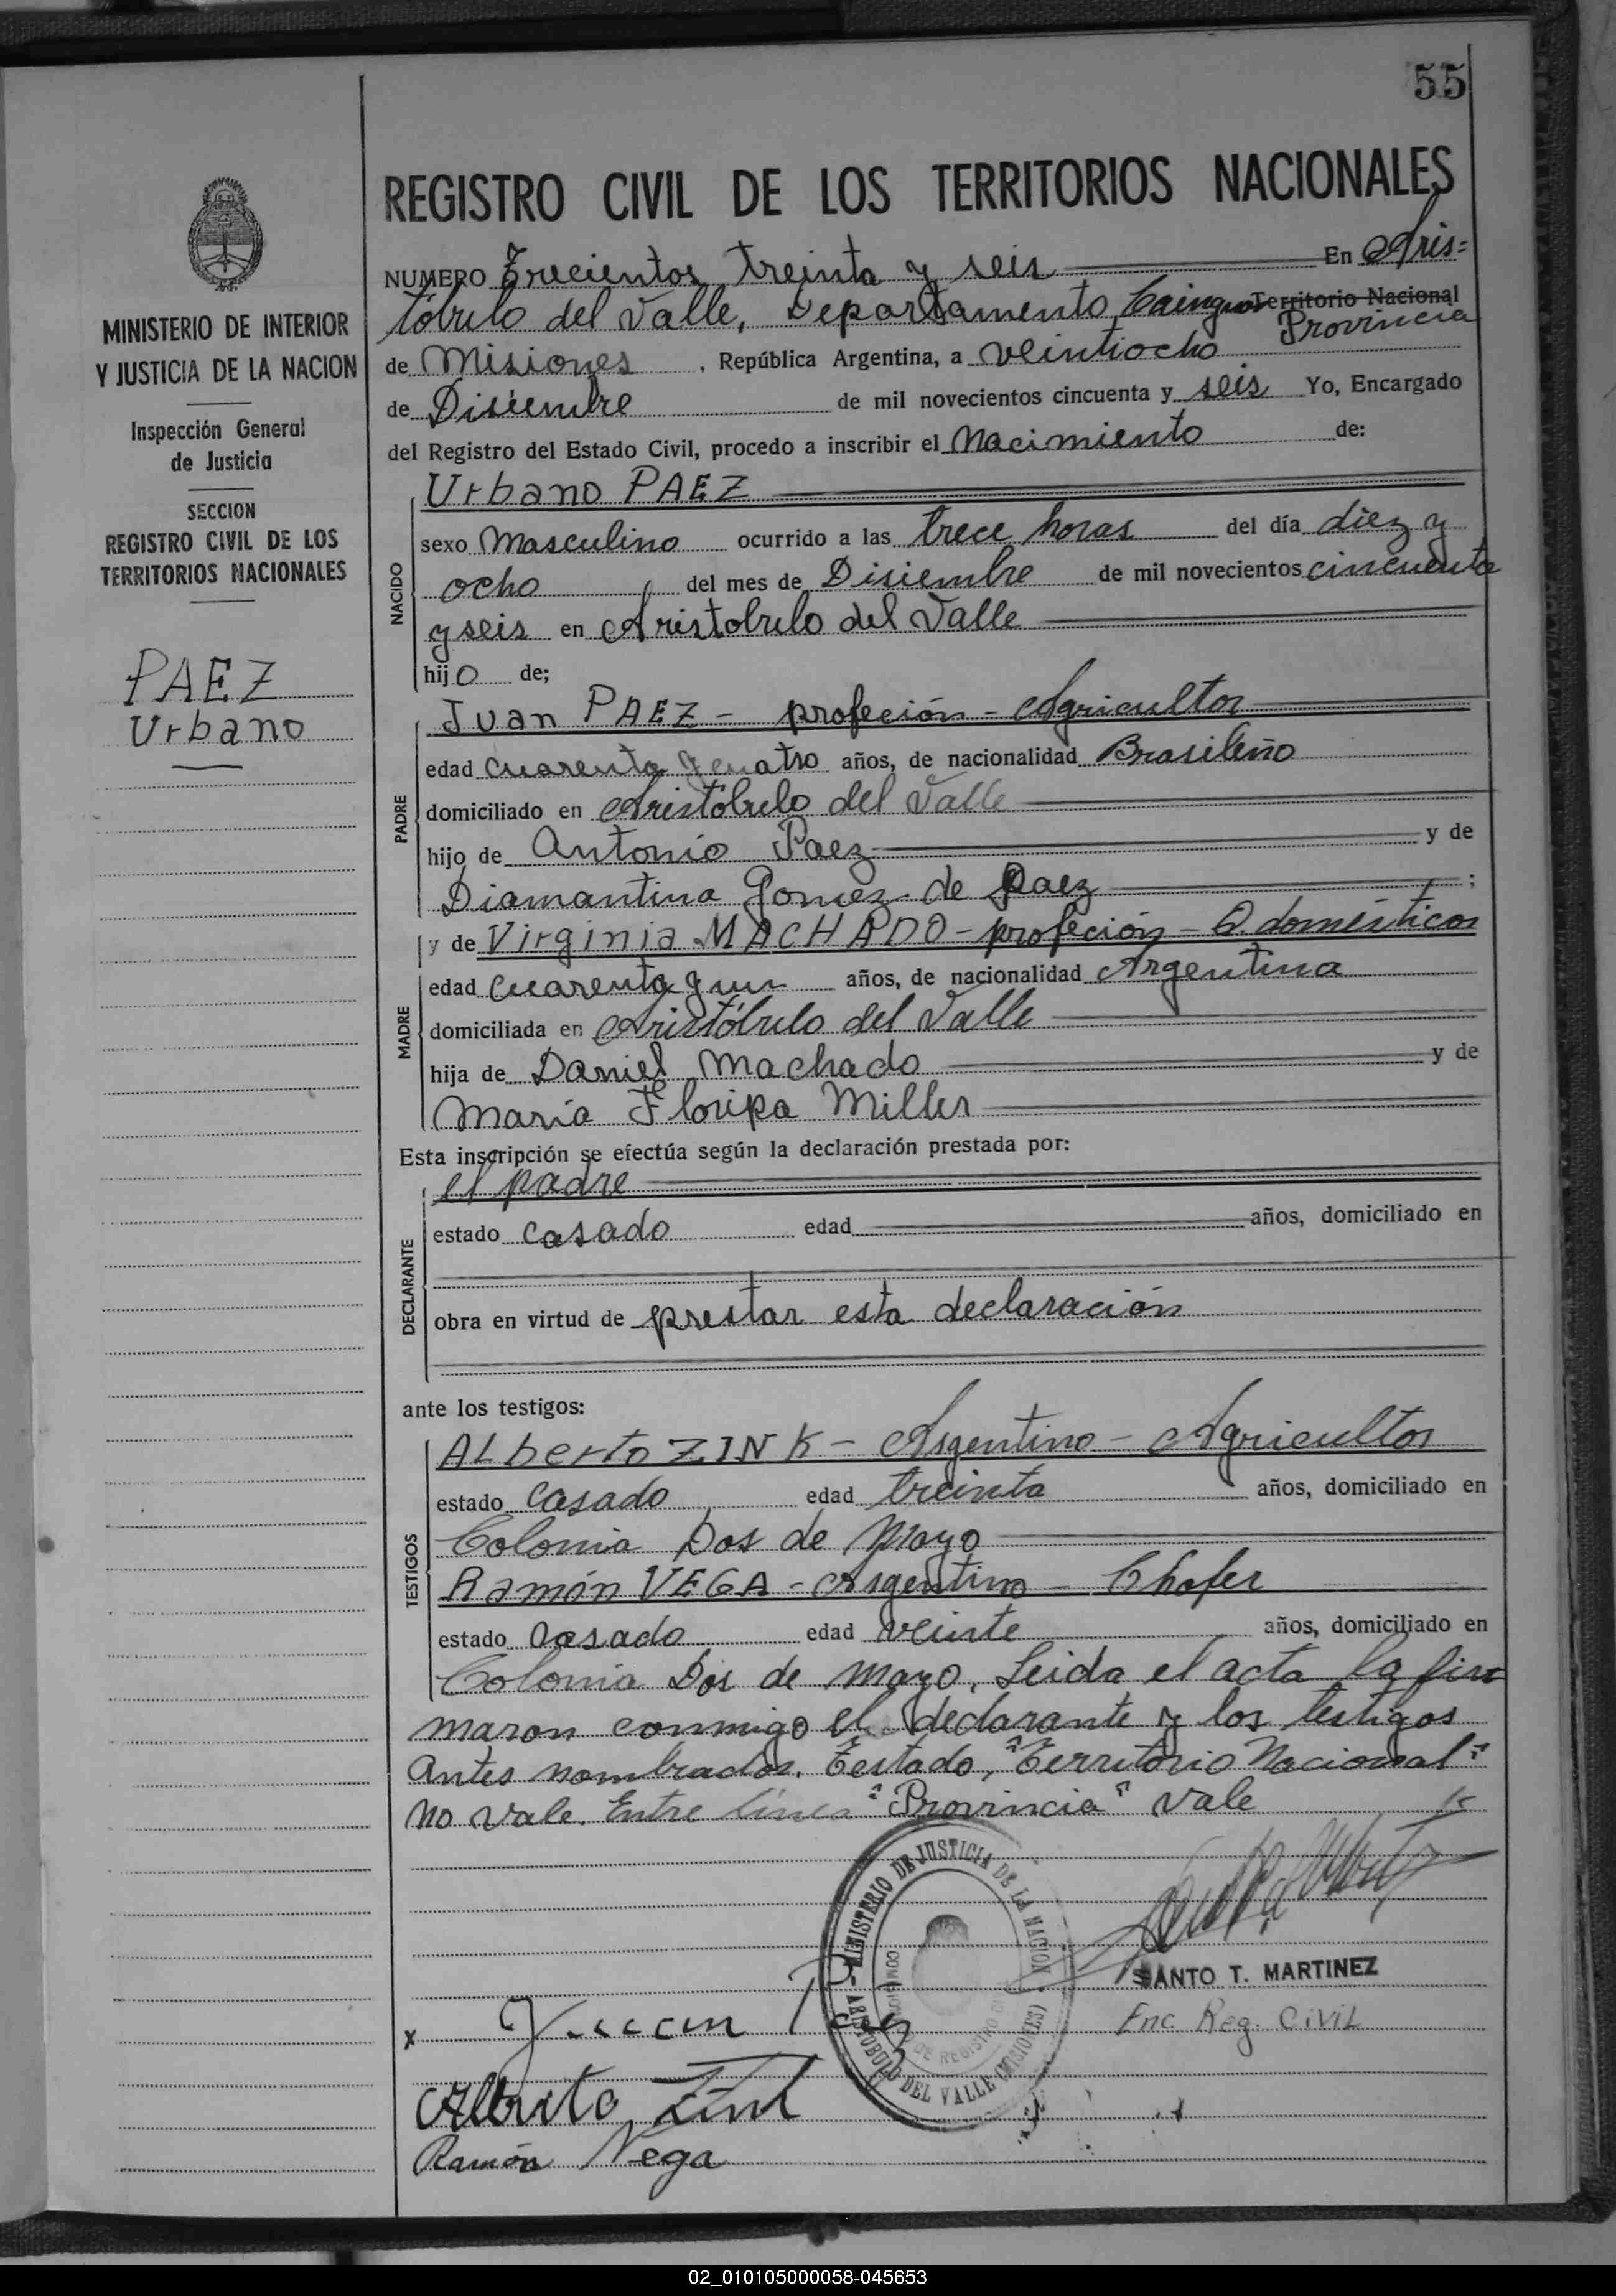 55
REGISTRO CIVIL DE LOS TERRITORIOS NACIONALES
MINISTERIO DE INTERIOR
Y JUSTICIA DE LA NACION
Inspección General
de Justicia
SECCION
REGISTRO CIVIL DE LOS
TERRITORIOS NACIONALES
PAEZ
Urbano
NUMERO Trecientos treinta y seis En Aris=
tóbulo del Valle, Departamento Cainguas Territorio Nacional
Provincia
de Misiones, República Argentina, a veintiocho
de Disiembre de mil novecientos cincuenta y seis Yo, Encargado
del Registro del Estado Civil, procedo a inscribir el Nacimiento de:
NACIDO
Urbano PAEZ
sexo Masculino ocurrido a las trece horas del día diez y
ocho del mes de Disiembre de mil novecientos cincuenta
y seis en Aristobulo del Valle
hijo de;
PADRE
Juan PAEZ - profeción - Agricultor
edad cuarenta y cuatro años, de nacionalidad Brasileño
domiciliado en Aristóbulo del Valle
hijo de Antonio Paez y de
Diamantina Gomez de Paez ;
MADRE
y de Virginia MACHADO - profeción - Q. domésticos
edad cuarenta y un años, de nacionalidad Argentina
domiciliada en Aristóbulo del Valle
hija de Daniel Machado y de
María Floripa Miller
Esta inscripción se efectúa según la declaración prestada por:
DECLARANTE
el padre
estado casado edad años, domiciliado en
obra en virtud de prestar esta declaración
ante los testigos:
TESTIGOS
ALberto ZINK - Argentino - Agricultor
estado casado edad treinta años, domiciliado en
Colonia Dos de Mayo
Ramón VEGA - Argentino - Chofer
estado casado edad veinte años, domiciliado en
Colonia Dos de mayo. Leida el acta la fir
maron conmigo el declarante y los testigos
antes nombrados. Testado, "Territorio Nacional"
no vale. Entre línea "Provincia" vale
MINISTERIO DE JUSTICIA DE LA NACION
ARISTOBULO DEL VALLE (MISIONES)
SANTO T. MARTINEZ
Enc Reg. CiviL
x Juan Paez
Alberto Zink
Ramón Vega
02_010105000058-045653